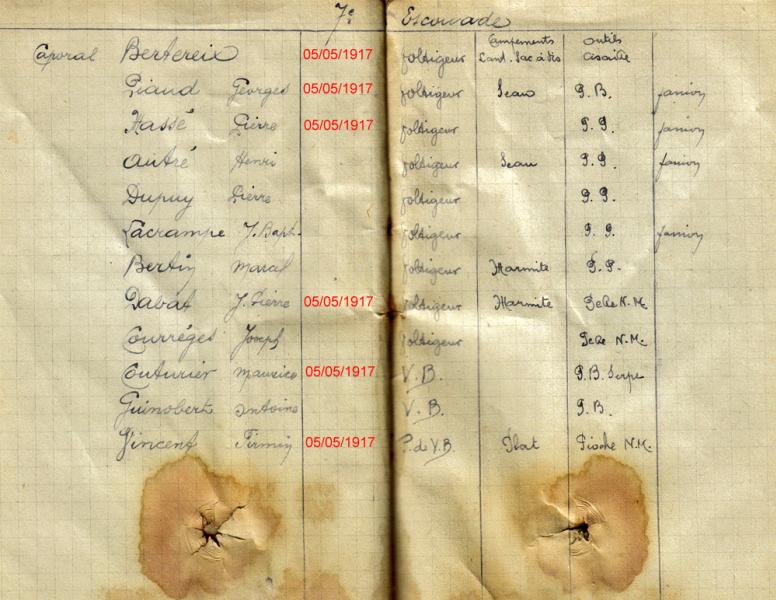 7e Escouade
Campements Outils
Caporal Bertereix 05/05/1917 Voltigeur Lant. Sac à dis
Piaud Georges 05/05/1917 Voltigeur Seau P. B. fanion
Hassé Pierre 05/05/1917 Voltigeur P. P. fanion
Autré Henri Voltigeur Seau P. P. fanion
Dupuy Pierre Voltigeur P. P.
Lacrampe J. Bapt. Voltigeur P. P. fanion
Bertin Marcel Voltigeur Marmite P. P.
Dabat J. Pierre 05/05/1917 Voltigeur Marmite Pelle N.M.
Courrèges Joseph Voltigeur Pelle N.M.
Couturier Maurice 05/05/1917 V. B. P. B. Serpe
Guinobert Antoine V. B. P. B.
Vincent Firmin 05/05/1917 P. de V. B. Plat Pioche N.M.